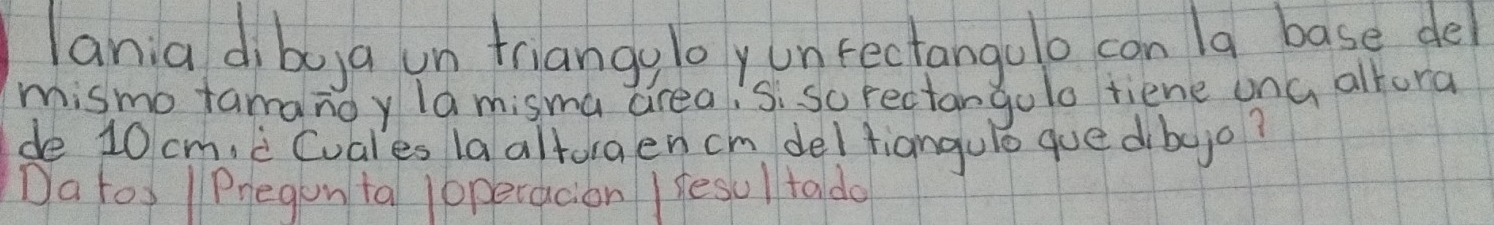 Tania dibuja un triangulo y un rectangulo con la base del
mismo tamaño y la misma área. Si su rectangulo tiene una altura
de 10 cm, ¿Cual es la altura en cm del tiangulo que dibujo?
Datos | Pregunta | operacion | resultado